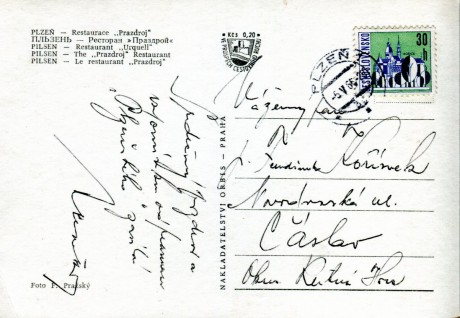 PLZEŇ — Restaurace „Prazdroj"
ПЛЬЗЕНЬ — Ресторан »Праздрой«
PILSEN — Restaurant „Urquell"
PILSEN — The „Prazdroj" Restaurant
PILSEN — Le restaurant „Prazdroj"
Kčs 0,20
PLZEŇ
30 h
ČESKOSLOVENSKO
Srdečný pozdrav a
vzpomínku
Plzeňského
zasílá
NAKLADATELSTVÍ ORBIS - PRAHA
Vážený pan
p. Kořínek
ul.
Čáslav
Okres Kutná Hora
Foto P. Pražský